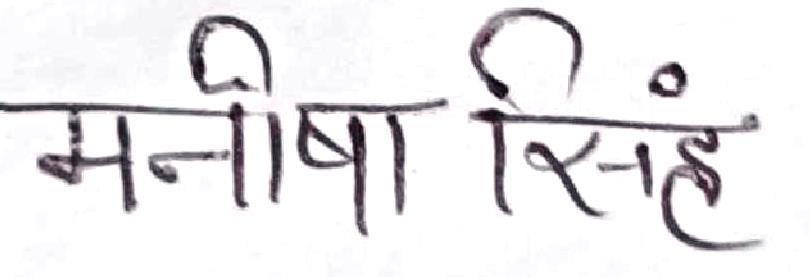 मनीषा सिंह